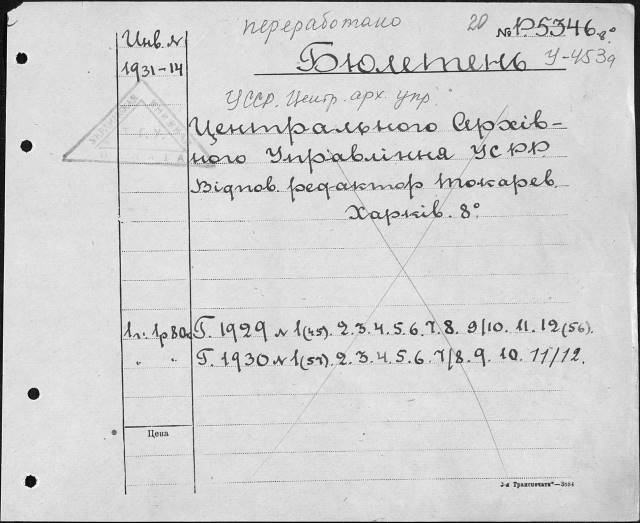 переработано 20 № P.5346 8°
Инв. №
1931-14
Бюлетень У-453д
УССР. Центр. арх. упр.
Центрального Архів-
ного Управління УСРР.
Відпов. редактор Токарев.
Харків. 8°.
Г. 1929 № 1(45). 2. 3. 4. 5. 6. 7. 8. 9/10. 11. 12(56).
„ „ Г. 1930 № 1(57). 2. 3. 4. 5. 6. 7/8. 9. 10. 11/12.
Цена